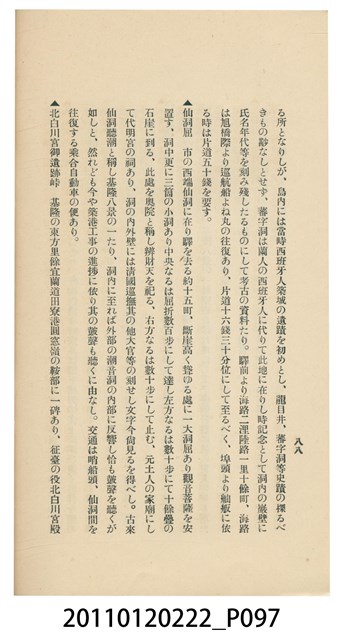 八八
る所となりしが、島內には當時西班牙人築城の遺蹟を初めとし、龍目井、蕃字洞等史蹟の探るべ
きもの尠なしとせず、蕃字洞は蘭人の西班牙人に代りて此地に在りし時記念として洞內の巖壁に
氏名年代等を刻み殘したるものにして考古の資料たり。驛前より海路二浬陸路一里十餘町、海路
は旭橋際より巡航船よね丸の往復あり、片道十六錢三十分位にして至るべく、埠頭より舢舨に依
る時は片道五十錢を要す。
▲仙洞屈 市の西端仙洞に在り驛を去る約十五町、斷崖高く聳ゆる處に一大洞屈あり觀音菩薩を安
置す、洞中更に三箇の小洞あり中央なるは屈折數百步にして達し左方なるは數十步にして十餘疊の
石崖に到る、此處を奥院と稱し辨財天を祀る、右方なるは數十步にして止む、元土人の家廟にし
て代明宮の祠あり、洞の內外壁には淸國巡撫其の他大官等の刻せし文字今尙見るを得べし。古來
仙洞聽潮と稱し基隆八景の一たり、洞內に至れば外部の潮音洞の內部に反響し恰も鼓聲を聽くが
如しと、然れども今や築港工事の進捗に依り其の鼓聲も聽くに由なし。交通は哨船頭、仙洞間を
往復する乘合自動車の便あり。
▲北白川宮御遺跡峠 基隆の東方里餘宜蘭道田寮港圓窓嶺の鞍部に一碑あり、征臺の役北白川宮殿
20110120222_P097